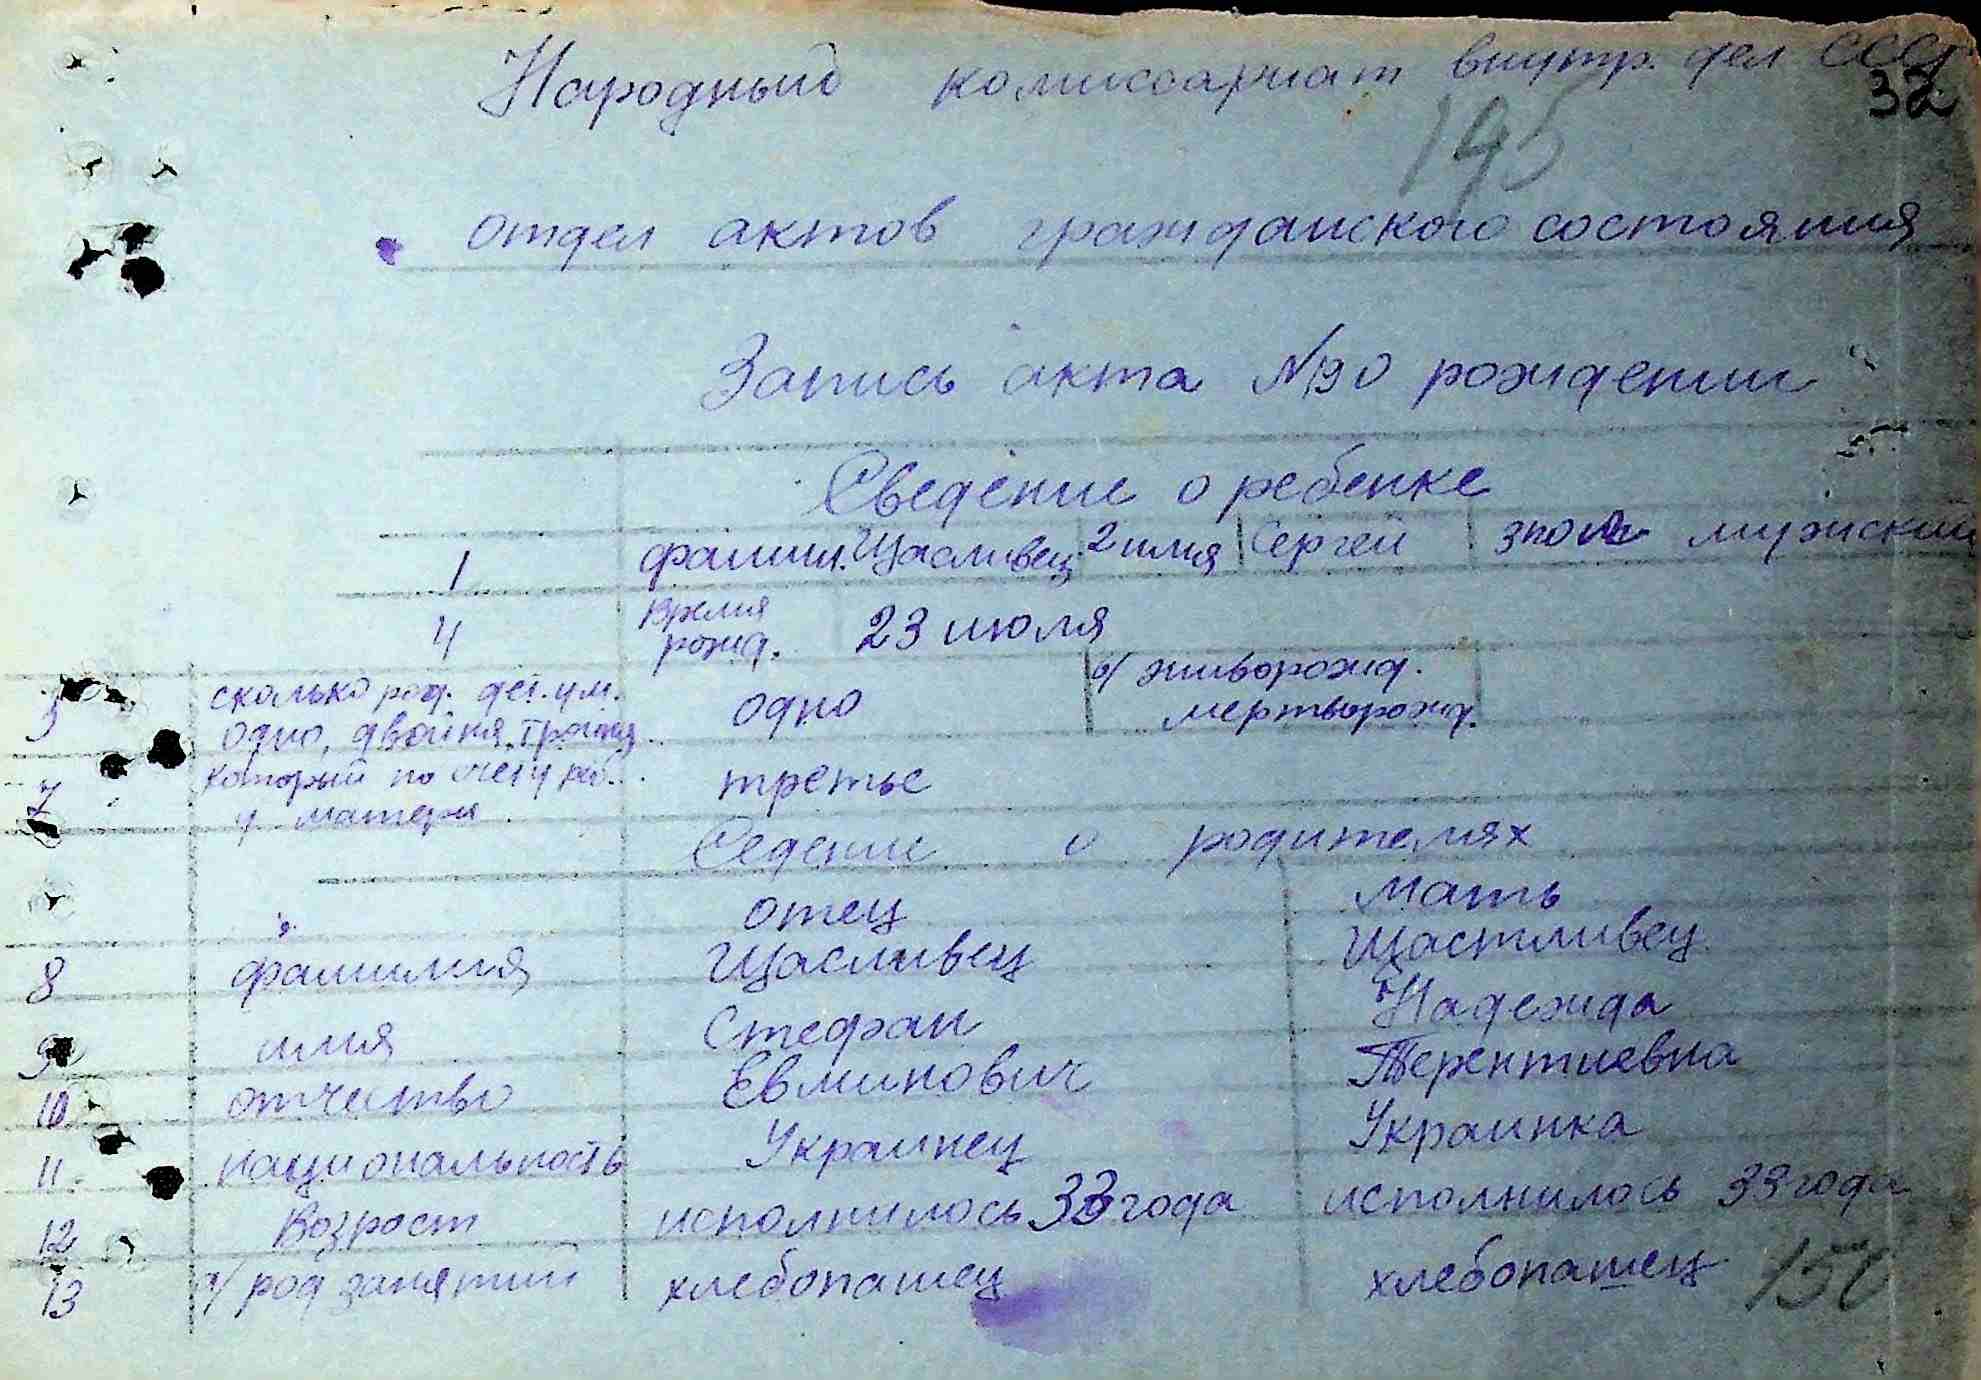 Народный комиссариат внутр. дел ССС
32
195
отдел актов гражданского состояния
Запись акта №190 рождении
Сведение о ребенке
1 фамил. Щасливец 2 имя Сергей 3 пол мужский
4 Время рожд. 23 июля
5 сколько род. дет. ум. одно, двойня, тройня одно а/ живорожд. мертворожд.
7 который по счету реб. у матери третье
Седение о родителях
отец мать
8 фамилия Щасливец Щастливец
9 имя Стефан Надежда
10 отчество Евминович Терентиевна
11. национальность Украинец Украинка
12 Возраст исполнилось 33 года исполнилось 33 года
13 а/ род занятий хлебопашец хлебопашец
150